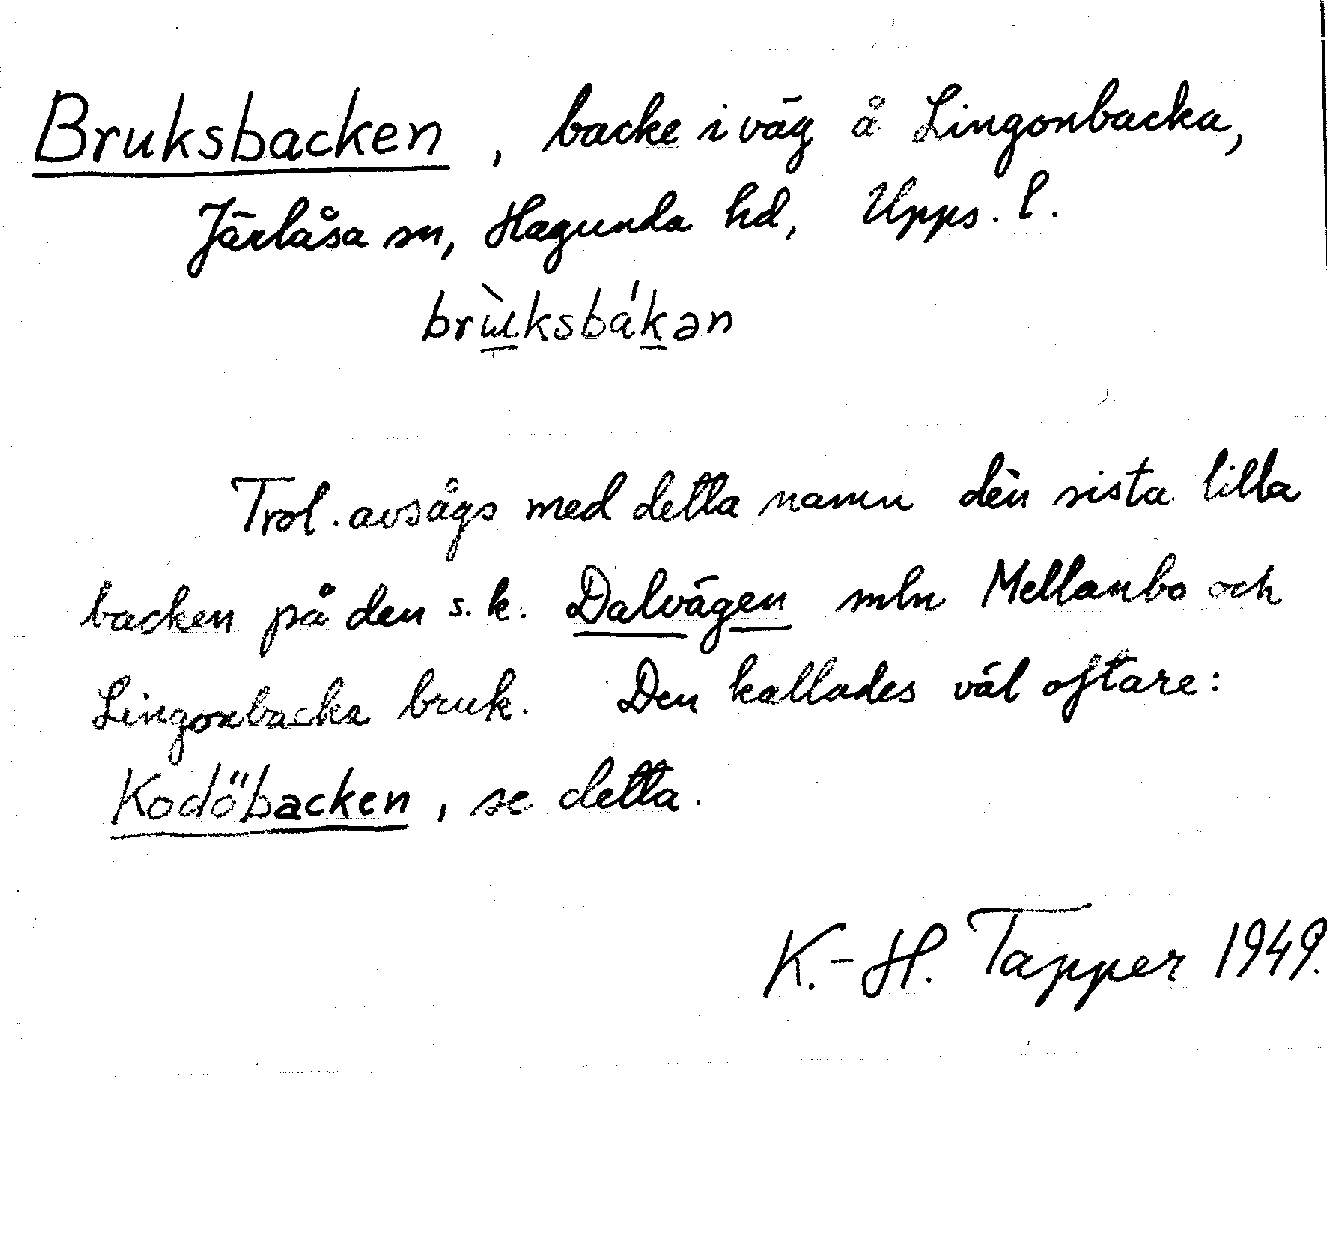 Bruksbacken, backe i väg å Lingonbacka,
Järlåsa sn, Hagunda hd, Upps. l.
brùksbák̲ən
Trol. avsågs med detta namn den sista lilla
backen på den s.k. Dalvägen mln Mellanbo och
Lingonbacka bruk. Den kallades väl oftare:
Kodöbacken, se detta.
K.-H. Tapper 1949.